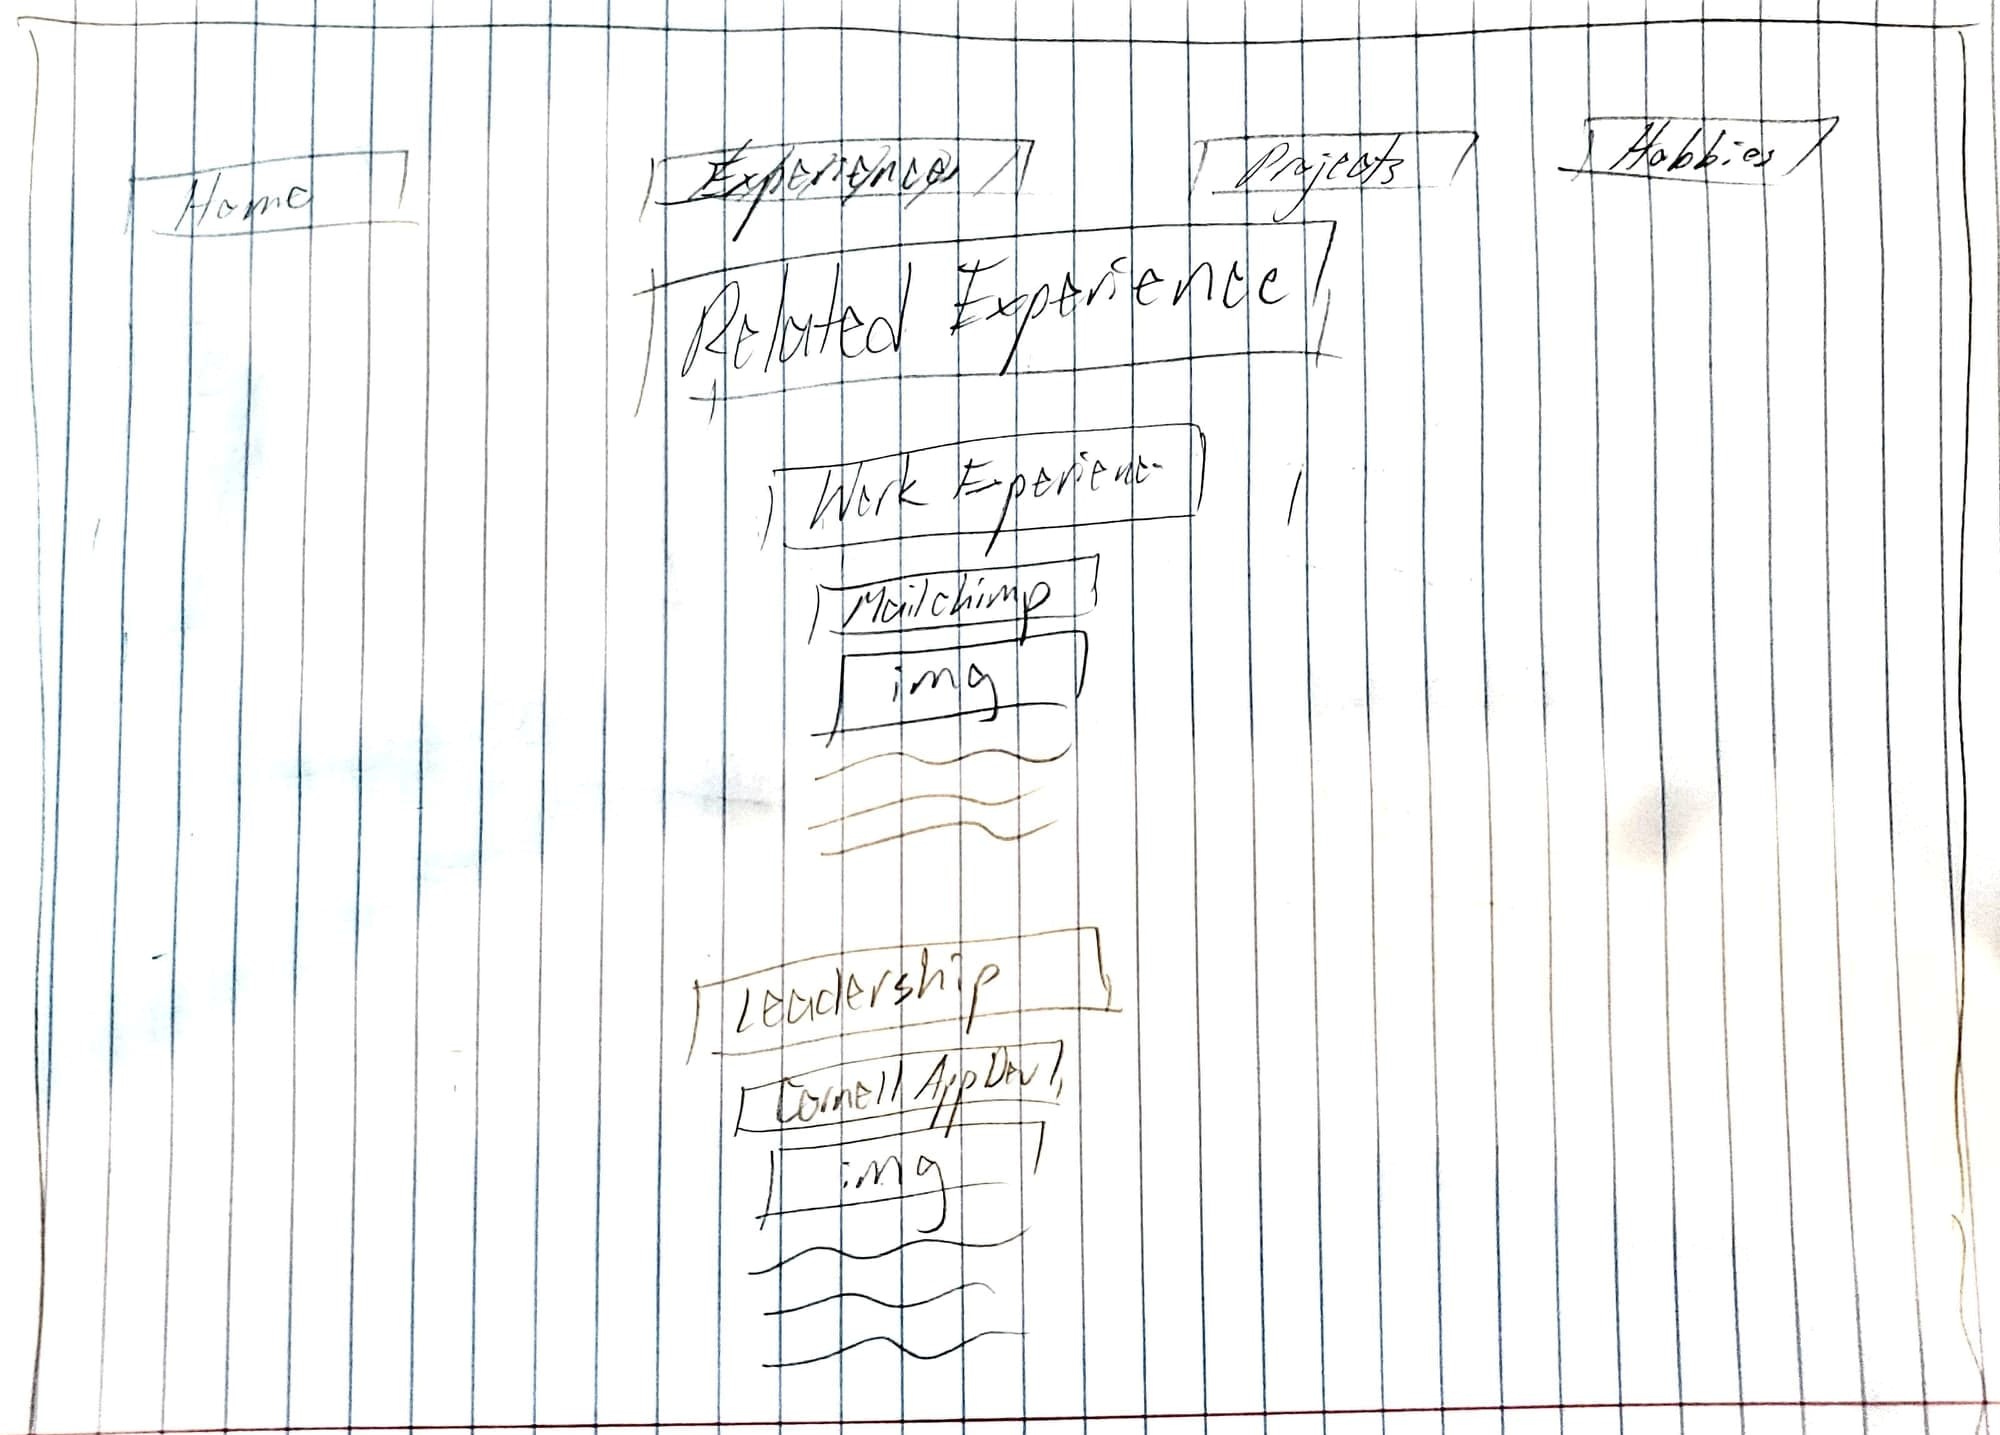 Home Experiences Projects Hobbies
Related Experience
Work Experienc
Mailchimp
img
Leadership
Cornell AppDev
img